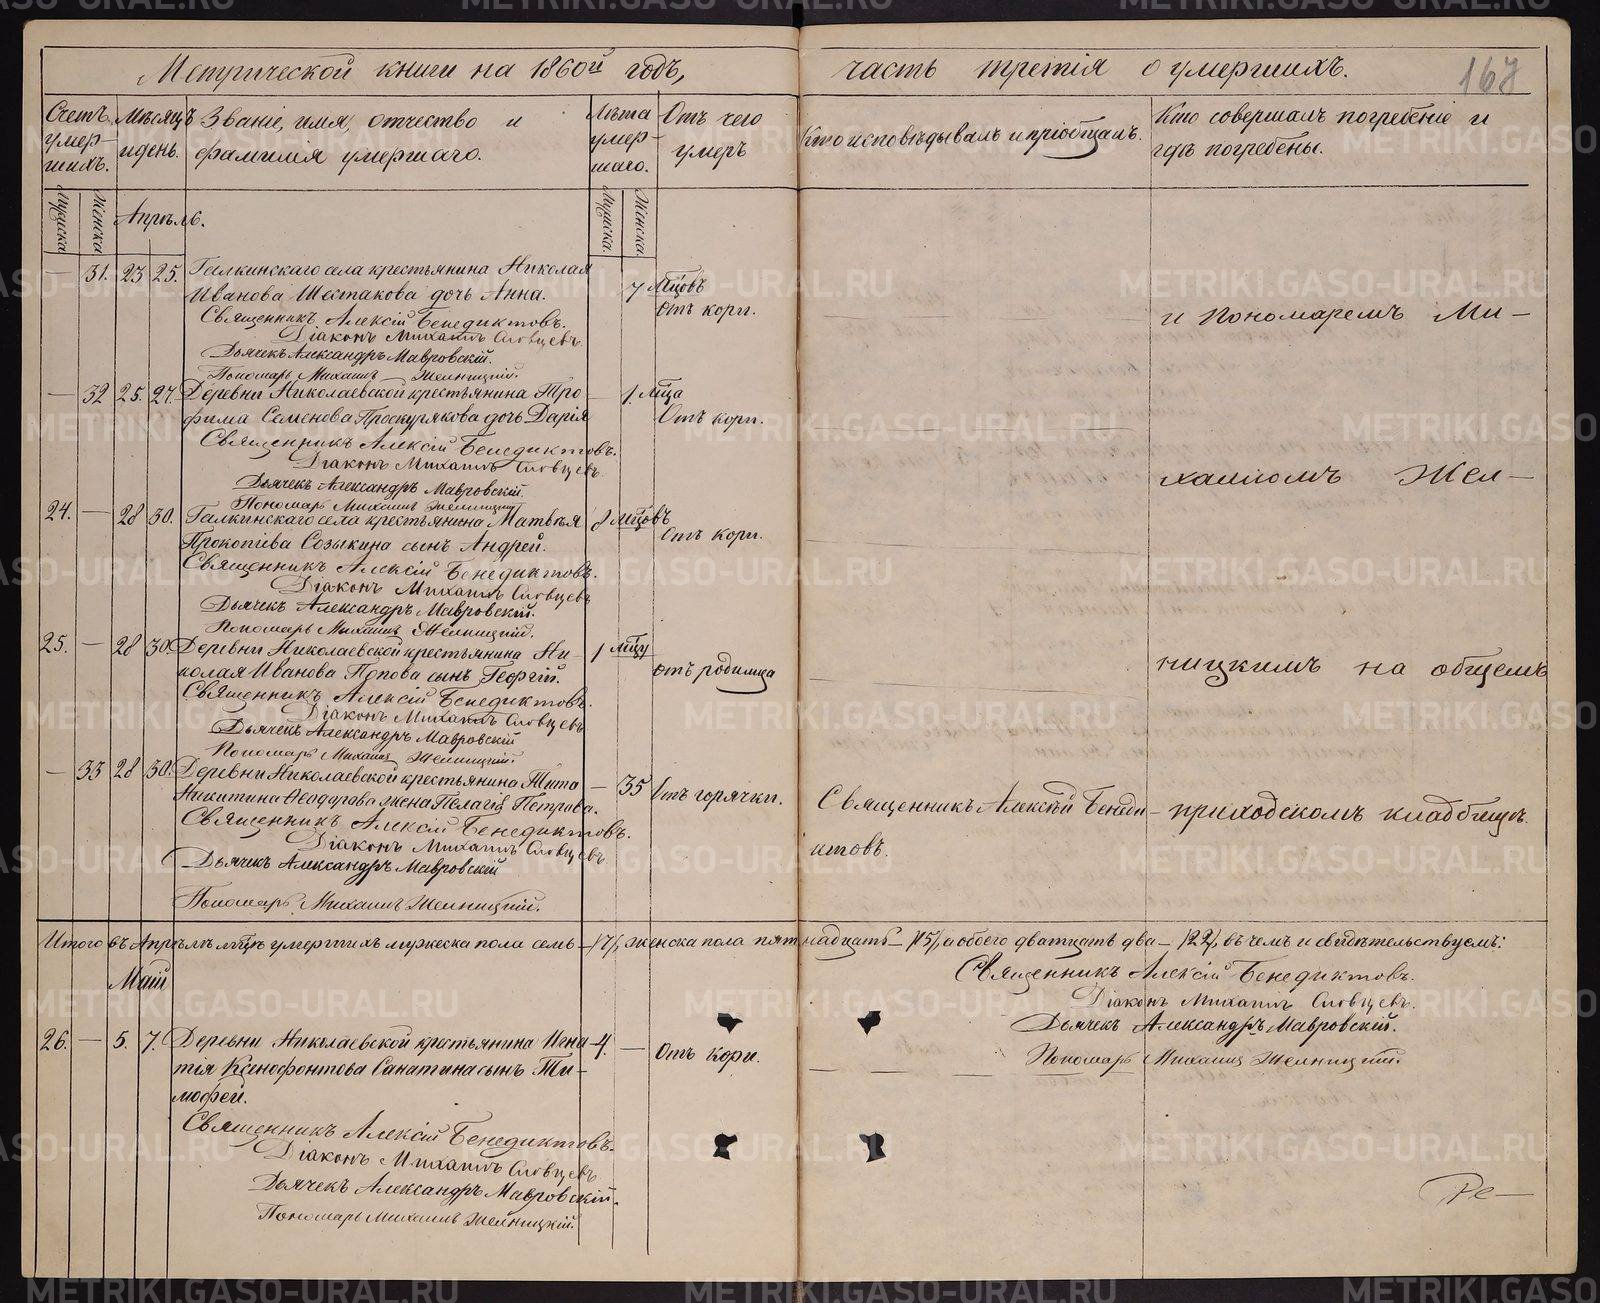 Метрической книги на 1860й годъ, часть третія о умершихъ.
167
Счетъ умер- шихъ.
Мѣсяцъ и день.
Званіе, имя, отчество и фамилія умершаго.
Лѣта умер- шаго.
Отъ чего умеръ
Кто исповѣдывалъ и пріобщалъ.
Кто совершалъ погребеніе и гдѣ погребены.
Мужеска
Женска
Апрѣль.
Мужеска.
Женска.
— 31. 23 25. Галкинскаго села крестьянина Николая 7 мцовъ
Иванова Шестакова дочь Анна. Отъ кори.
и Пономаремъ Ми-
Священникъ Алексій Бенедиктовъ.
Діаконъ Михаилъ Словцевъ.
Дьячекъ Александръ Мавровскій.
Пономарь Михаилъ Желницкій.
— 32 25. 27. Деревни Николаевской крестьянина Тро- — 1. мца
фима Семенова Проскурякова дочь Дарія Отъ кори.
Священникъ Алексій Бенедиктовъ.
Діаконъ Михаилъ Словцевъ
хаиломъ Жел-
Дьячекъ Александръ Мавровскій.
Пономарь Михаилъ Желницкій
24. — 28 30. Галкинскаго села крестьянина Матвѣя 8 мцовъ
Прокопіева Созыкина сынъ Андрей. Отъ кори.
Священникъ Алексій Бенедиктовъ.
Діаконъ Михаилъ Словцевъ
Дьячекъ Александръ Мавровскій.
Пономарь Михаилъ Желницкій.
25. — 28 30. Деревни Николаевской крестьянина Ни- 1 мцу
колая Иванова Попова сынъ Георгій. отъ родимца
ницкимъ на общемъ
Священникъ Алексій Бенедиктовъ.
Діаконъ Михаилъ Словцевъ
Дьячекъ Александръ Мавровскій
Пономарь Михаилъ Желницкій.
— 33 28 30. Деревни Николаевской крестьянина Тита — 35 Отъ горячки.
Никитина Ѳеодорова жена Пелагія Петрова.
Священникъ Алексій Бенеди-
ктовъ.
приходскомъ кладбищѣ.
Священникъ Алексій Бенедиктовъ.
Діаконъ Михаилъ Словцевъ
Дьячекъ Александръ Мавровскій
Пономарь Михаилъ Желницкій.
Итого въ Апрѣлѣ мцѣ умершихъ мужеска пола семь — /7/, женска пола пятнадцать — /15/, а обоего дватцать два — /22/, въ чемъ и свидѣтельствуемъ:
Священникъ Алексій Бенедиктовъ.
Діаконъ Михаилъ Словцевъ.
Дьячекъ Александръ Мавровскій.
Пономарь Михаилъ Желницкій.
Май
26. — 5. 7. Деревни Николаевской крестьянина Игна- 4. — Отъ кори.
тія Ксенофонтова Санатина сынъ Ти-
мофей.
Священникъ Алексій Бенедиктовъ.
Діаконъ Михаилъ Словцевъ
Дьячекъ Александръ Мавровскій.
Пономарь Михаилъ Желницкій.
Ре-
METRIKI.GASO-URAL.RU